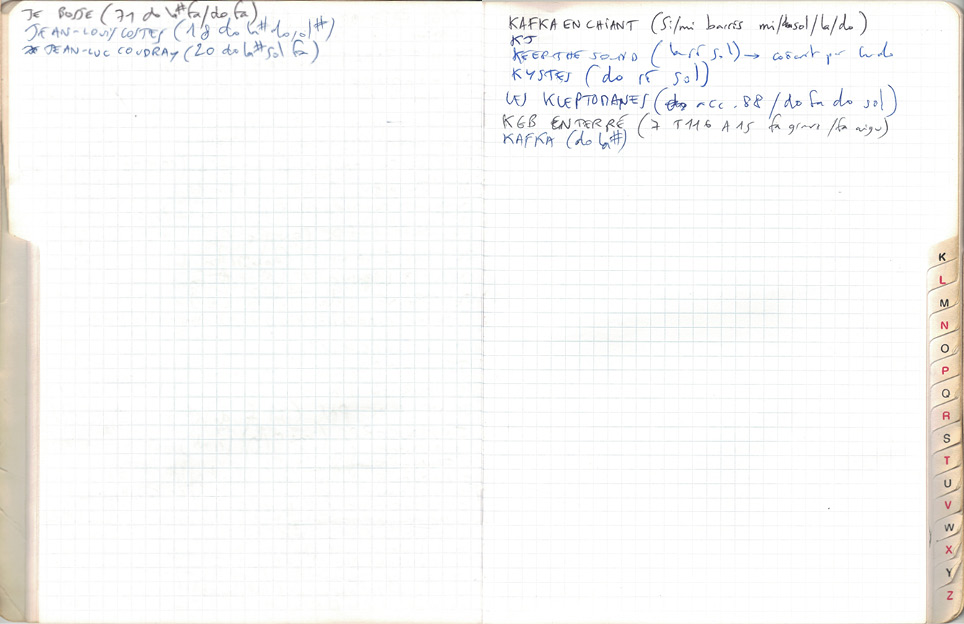 JE BOSSE (71 do la# fa/do fa)
JEAN-LOUIS COSTES (18 do la# do sol#)
JEAN-LUC COUDRAY (20 do la# sol fa)
KAFKA EN CHIANT (Si/mi barrés mi/sol/la/do)
KJ
KEEP THE SOUND (la ré sol) →
KYSTES (do ré sol)
LES KLEPTOMANES (acc.88/do fa do sol)
KGB ENTERRÉ (7 T116 A15 fa grave/fa aigu)
KAFKA (do la#)
K
L
M
N
O
P
Q
R
S
T
U
V
W
X
Y
Z